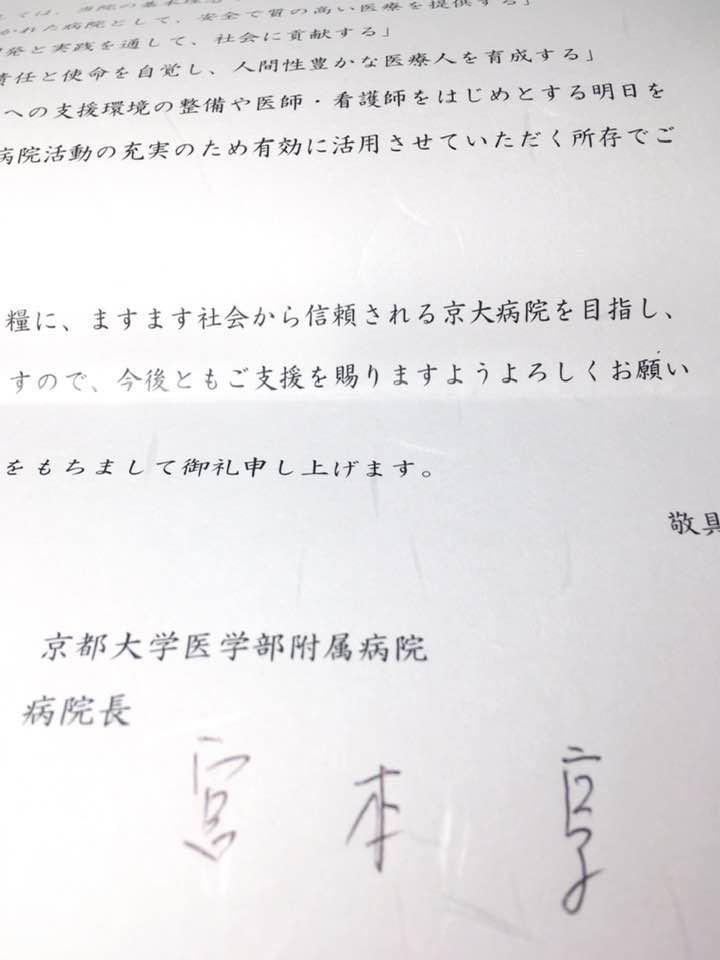 しては、当院の基本理念
かれた病院として、安全で質の高い医療を提供する」
発と実践を通して、社会に貢献する」
責任と使命を自覚し、人間性豊かな医療人を育成する」
への支援環境の整備や医師・看護師をはじめとする明日を
病院活動の充実のため有効に活用させていただく所存でご
糧に、ますます社会から信頼される京大病院を目指し、
すので、今後ともご支援を賜りますようよろしくお願い
をもちまして御礼申し上げます。
敬具
京都大学医学部附属病院
病院長
宮本享